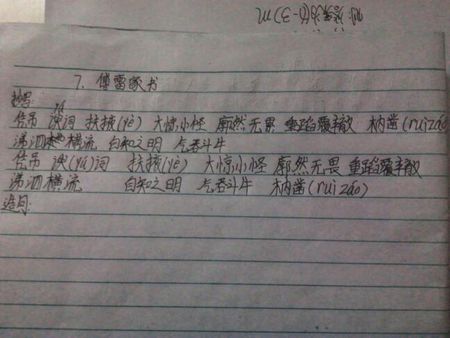 7. 傅雷家书
yú
信吊 谀词 扶掖(yè) 大惊小怪 廓然无畏 重蹈覆辙 枘凿(ruì záo)
涕泗横流 自知之明 气吞斗牛
信吊 谀(yú)词 扶掖(yè) 大惊小怪 廓然无畏 重蹈覆辙
涕泗横流 自知之明 气吞斗牛 枘凿(ruì záo)